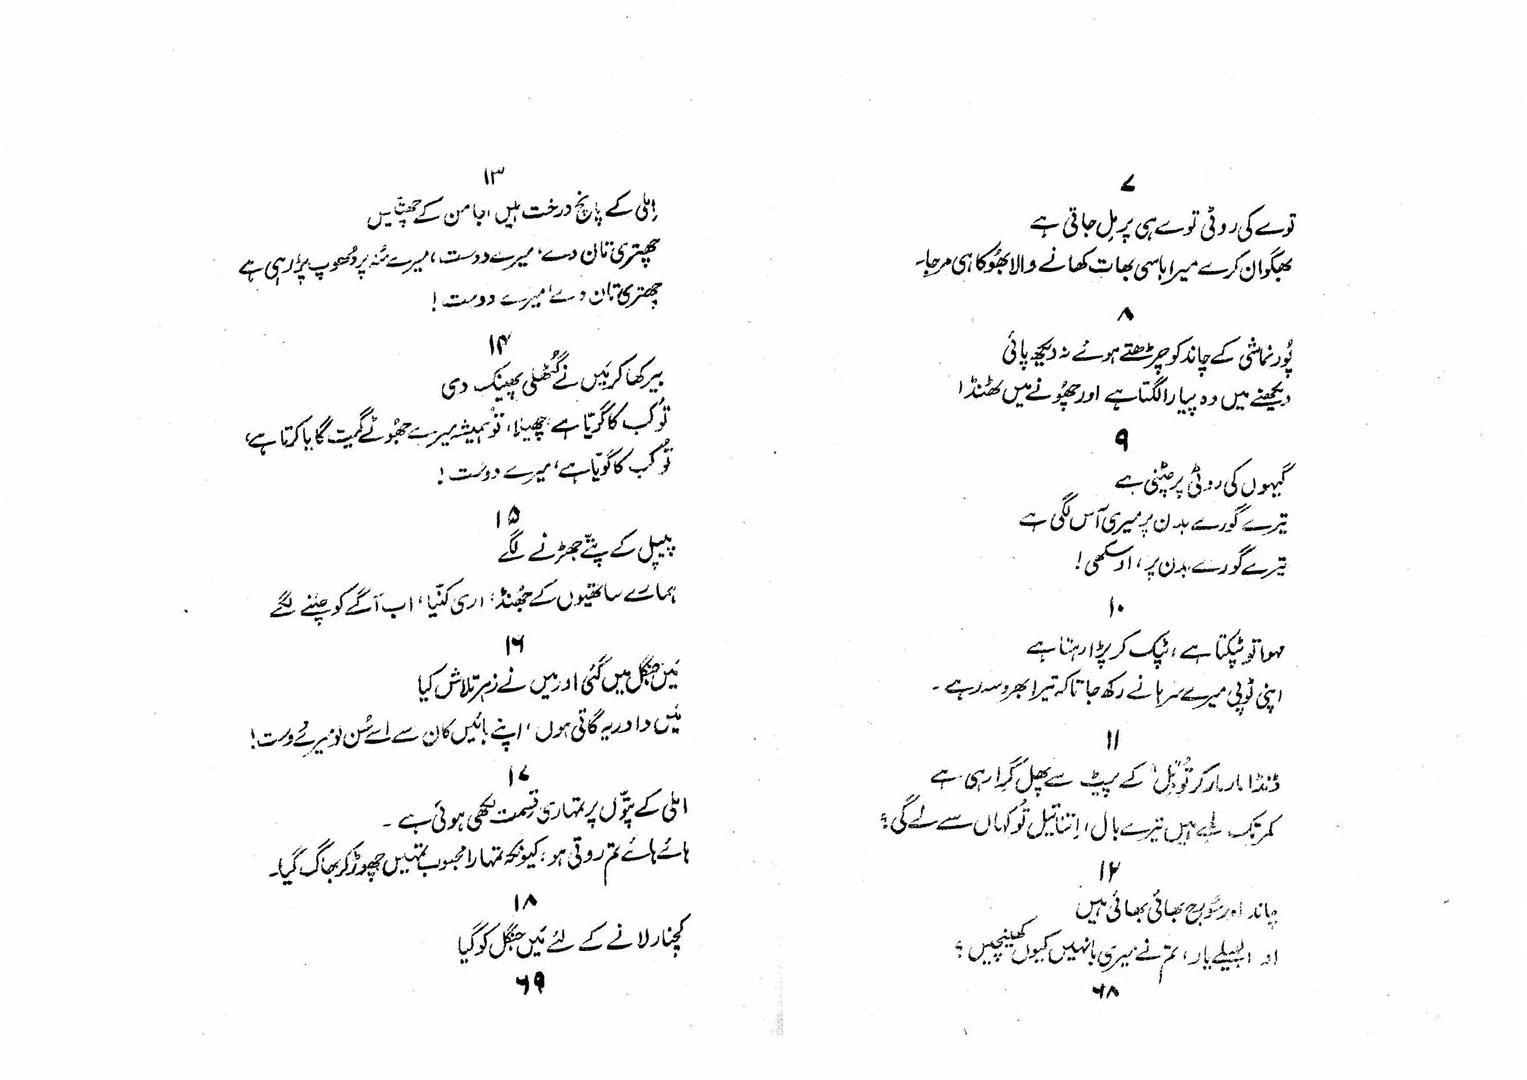 ۷
توے کی روٹی توے ہی پر جل جاتی ہے
بھگوان کرے میرا باسی بھات کھانے والا بھُوکا ہی مرجائے
۸
پُورنماشی کے چاند کو چڑھتے ہوئے نہ دیکھ پائی
دیکھنے میں وہ پیارا لگتا ہے اور چھُونے میں ٹھنڈا
۹
گیہوں کی روٹی پر چٹنی ہے
تیرے گورے بدن پر میری آس لگی ہے
تیرے گورے بدن پر، او سکھی!
۱۰
مہوا تو ٹپکتا ہے، ٹپک کر پڑا رہتا ہے
اپنی ٹوپی میرے سرہانے رکھ جا تاکہ تیرا بھروسہ رہے۔
۱۱
ڈنڈا مار مار کر تُو 'بیل' کے پیڑ سے پھل گرا رہی ہے
کمر تک لمبے ہیں تیرے بال، اِتنا تیل تُو کہاں سے لے گی؟
۱۲
چاند اور سُورج بھائی بھائی ہیں
او البیلے یار، تم نے میری بانہیں کیوں کھینچیں؟
۶۸
۱۳
اِملی کے پانچ درخت ہیں، جامن کے چھتیس
چھتری تان دے، میرے دوست، میرے مُنہ پر دُھوپ پڑ رہی ہے
چھتری تان دے، میرے دوست!
۱۴
بیر کھا کر مَیں نے گُٹھلی پھینک دی
تُو کب کا گویّا ہے چھیلا، تُو ہمیشہ میرے جھُوٹے گیت گایا کرتا ہے،
تُو کب کا گویّا ہے، میرے دوست!
۱۵
پیپل کے پتّے جھڑنے لگے
ہمارے ساتھیوں کے جھُنڈ، اری کنیّا، اب آگے کو چلنے لگے
۱۶
مَیں جنگل میں گئی اور میں نے زہر تلاش کیا
مَیں دادریہ گاتی ہوں، اپنے بائیں کان سے اسے سُن لو میرے دوست!
۱۷
املی کے پتّوں پر تمہاری قسمت لکھی ہوئی ہے۔
ہائے ہائے تم روتی ہو، کیونکہ تمہارا محبوب تمہیں چھوڑ کر بھاگ گیا۔
۱۸
کچنار لانے کے لئے مَیں جنگل کو گیا
۶۹